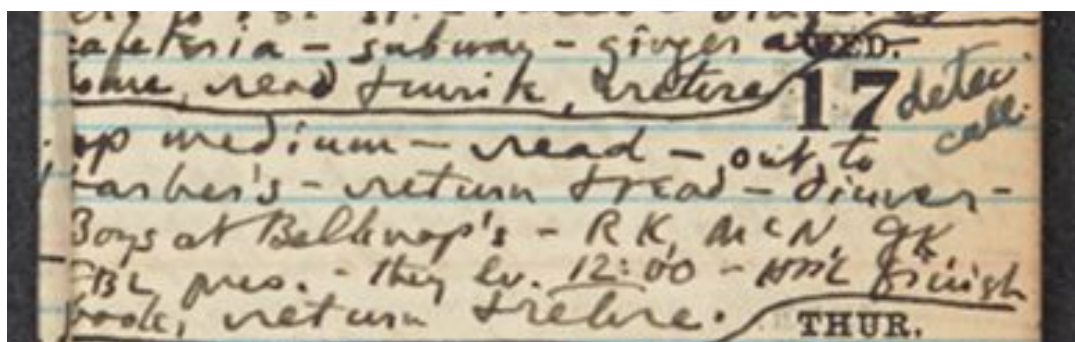 cafeteria – subway – ginger ale WED.
home, read & write, retire 17 detec. call.
up medium – read – out to
barber's – return & read – dinner –
Boys at Belknap's – RK, McN, GK
FBL pres. – they lv. 12:00 – HPL finish
book, return & retire.
THUR.